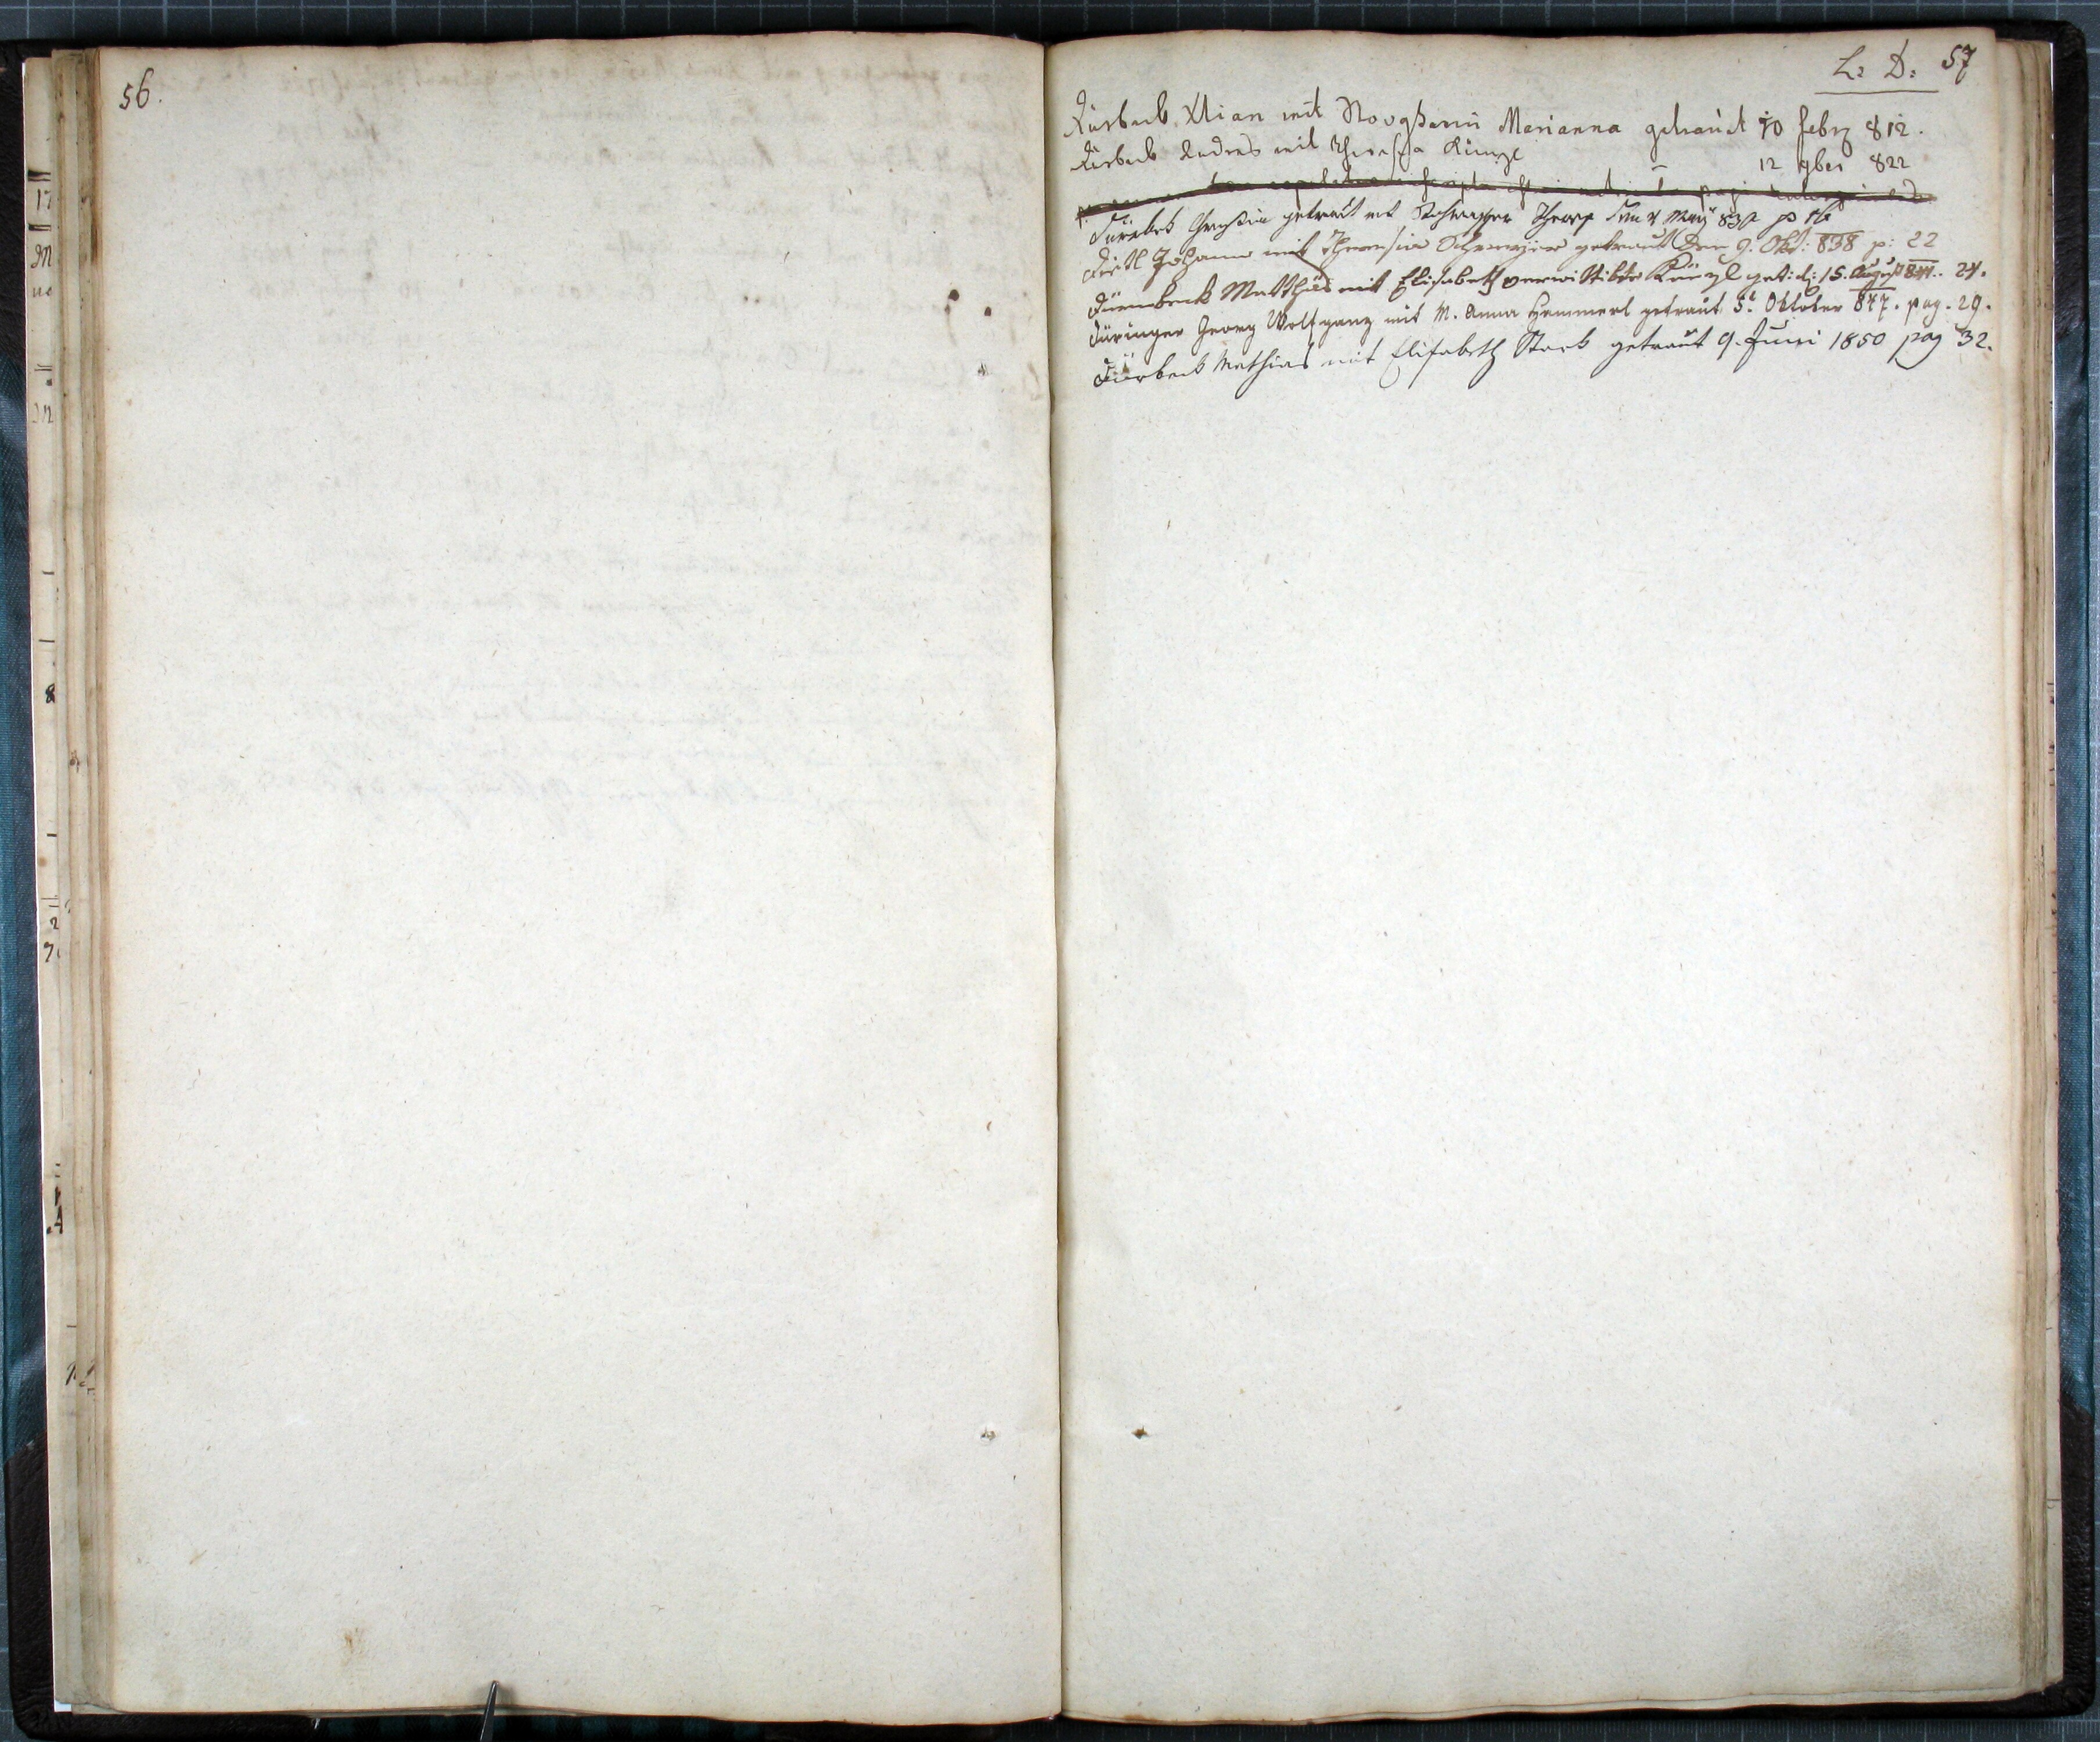 56.
L: D: 57
Dürbeck Xtian mit Marianna getraut 10 febr 812.
Dürbeck Andres mit Theresia Künzl — 12 9ber 822
Dürrbek getraut mit Theres May 832 p 16
Dietl Johann mit Theresia getraut den 9. Okt: 838 p: 22
Dürnbeck Matthias mit Elisabeth verwittibte Künzl get: d: 15. August 841. 24.
Düringer Georg Wolfgang mit M. Anna Hammerl getraut 5t Oktober 847. pag. 29.
Dürbeck Mathias mit Elisabeth Stark getraut 9. Juni 1850 pag 32.